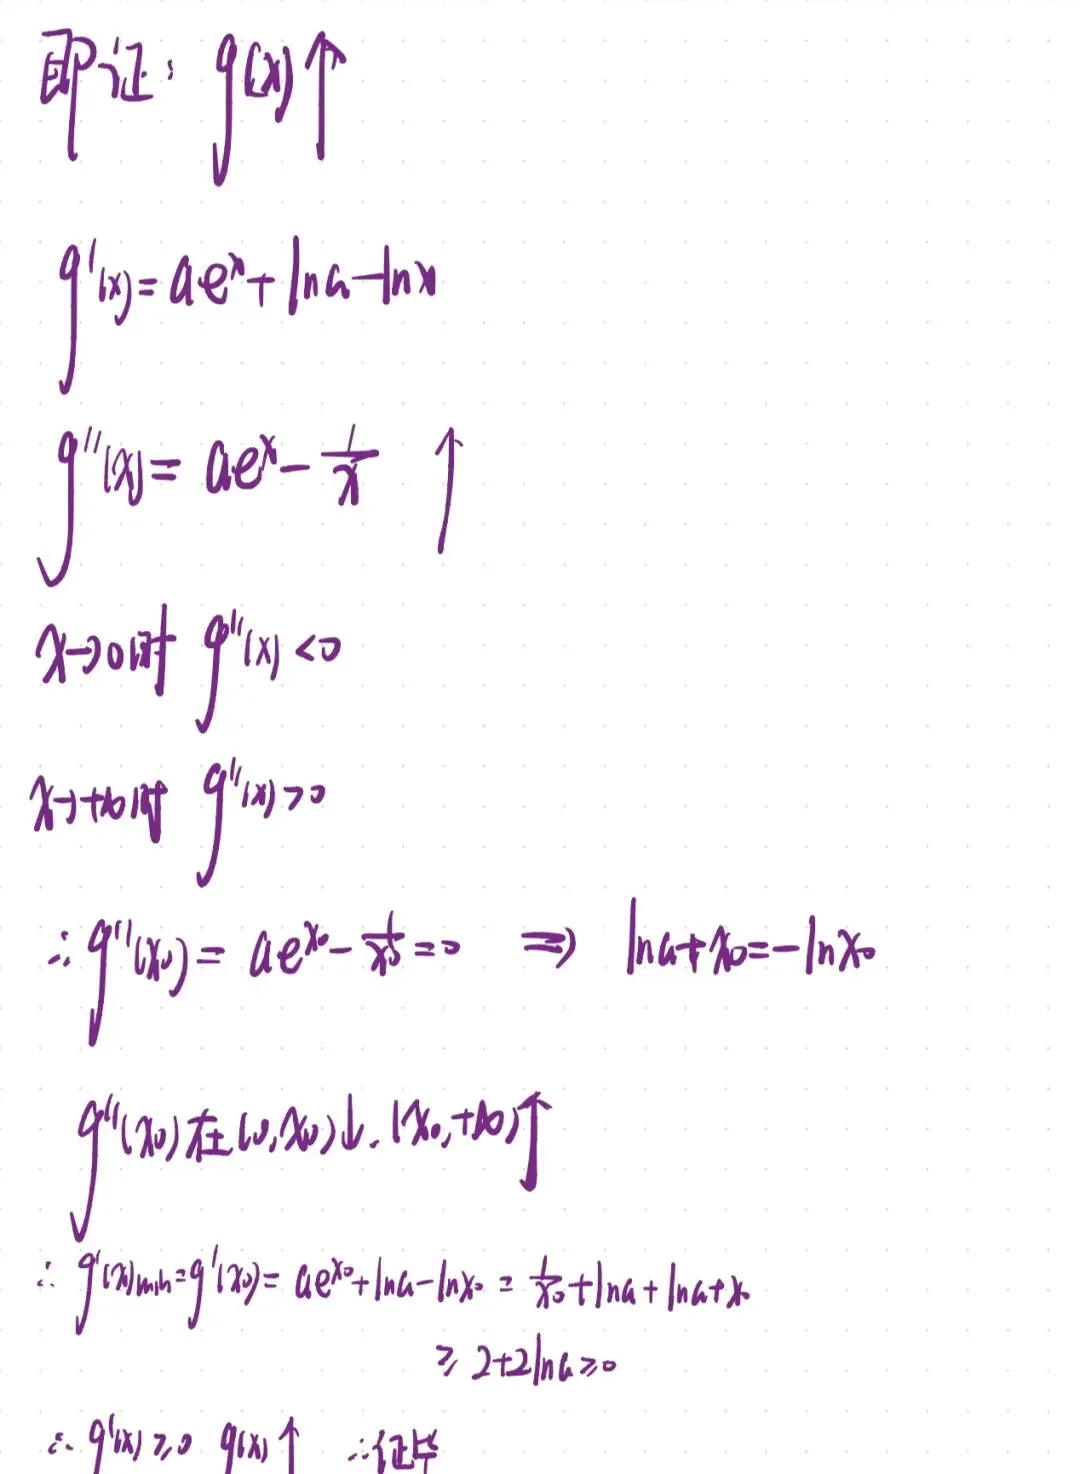 即证: g(x)↑
g'(x)=ae^x+lna-lnx
g''(x)=ae^x-1/x ↑
x→0时 g''(x)<0
x→+∞时 g''(x)>0
∴g''(x₀)=ae^x₀-1/x₀=0 ⇒ lna+x₀=-lnx₀
g''(x₀)在(0,x₀)↓.(x₀,+∞)↑
∴g'(x)min=g'(x₀)=ae^x₀+lna-lnx₀=1/x₀+lna+lna+x₀
≥2+2lna≥0
∴g'(x)≥0 g(x)↑ ∴证毕